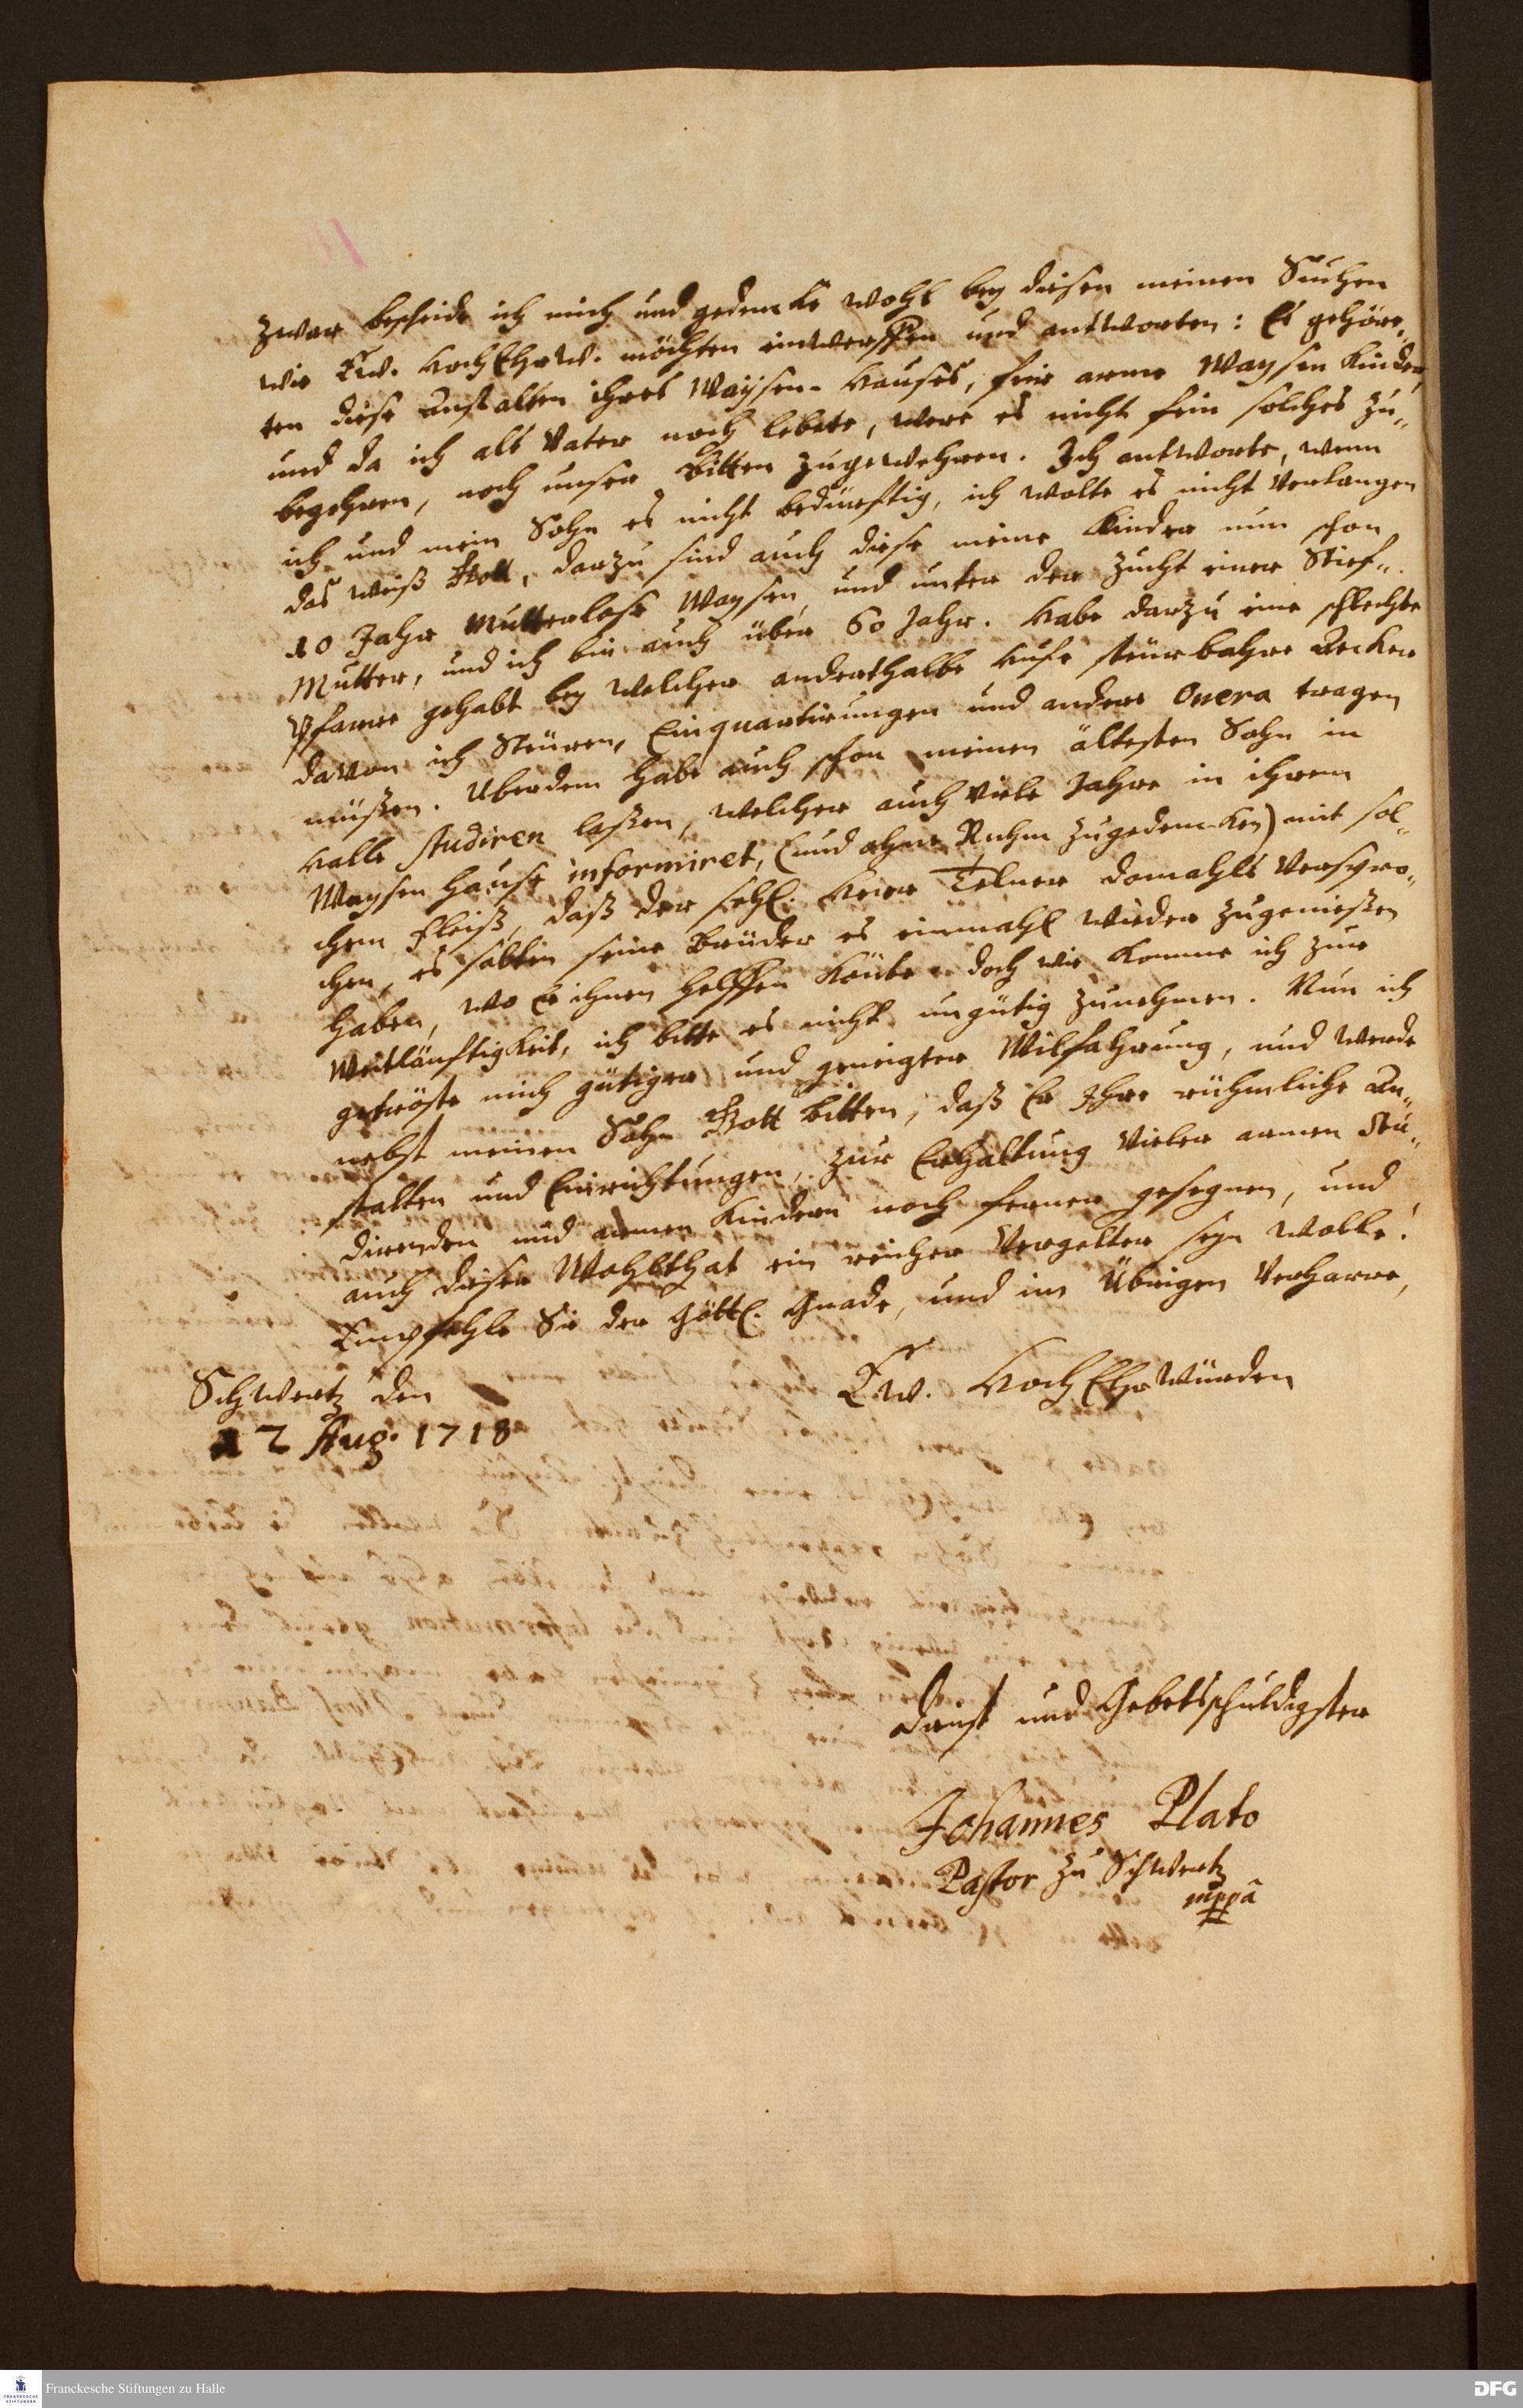 Zwar bescheide ich mich und gedencke wohl bey diesen meinen Suchen
wie Ew. HochEhrw. möchten einwerffen und antworten: Es gehöre„
ten diese anstalten ihres Waysen-Hauses, für arme Waysen Kinder,
und da ich als Vater noch lebete, were es nicht fein solches zu„
begehren, noch unser Bitten zugewehren. Ich antworte, wenn
ich und mein Sohn es nicht bedürftig, ich wolte es nicht verlangen
das weiß Gott, darzu sind auch diese meine Kinder nun schon
10 Jahr Mutterlose Waysen, und unter der Zucht einer Stief„
Mutter, und ich bin auch über 60 Jahr. Habe darzu eine schlechte
Pfarre gehabt bey welcher anderthalbe Hufe steurbahre Aecker
davon ich Steuren, Einquartirungen und andere Onera tragen
müßen. Uberdem habe auch schon meinen ältesten Sohn in
Halle studiren laßen, welcher auch viele Jahre in ihrem
Waysenhause informiret, (und ohne Ruhm zugedencken) mit sol„
chem fleiß, daß der sehl. Herr Telner domahls verspro„
chen, es solten seine Brüder es einmahl wieder zugenießen
haben, wo Er ihnen helffen könte. doch wie komme ich zur
Weitläuftigkeit, ich bitte es nicht ungütig zunehmen. Nun ich
getröste mich gütiger und geneigter Wilfahrung, und werde
nebst meinen Sohn Gott bitten, daß Er Ihre rühmliche An„
stalten und Einrichtungen, zur Erhaltung vieler armen Stu„
direnden und armen Kindern noch ferner gesegnen, und
auch dieser Wohlthat ein reicher Vergelter seyn wolle!
Empfehle Sie der Göttl. Gnade, und im Übrigen verharre,
Ew. HochEhrwürden
Schwertz den
12 Aug. 1718
Dienst und Gebetsschuldigster
Johannes Plato
Pastor zu Schwertz
mppâ
Franckesche Stiftungen zu Halle
FRANCKESCHE STIFTUNGEN
DFG